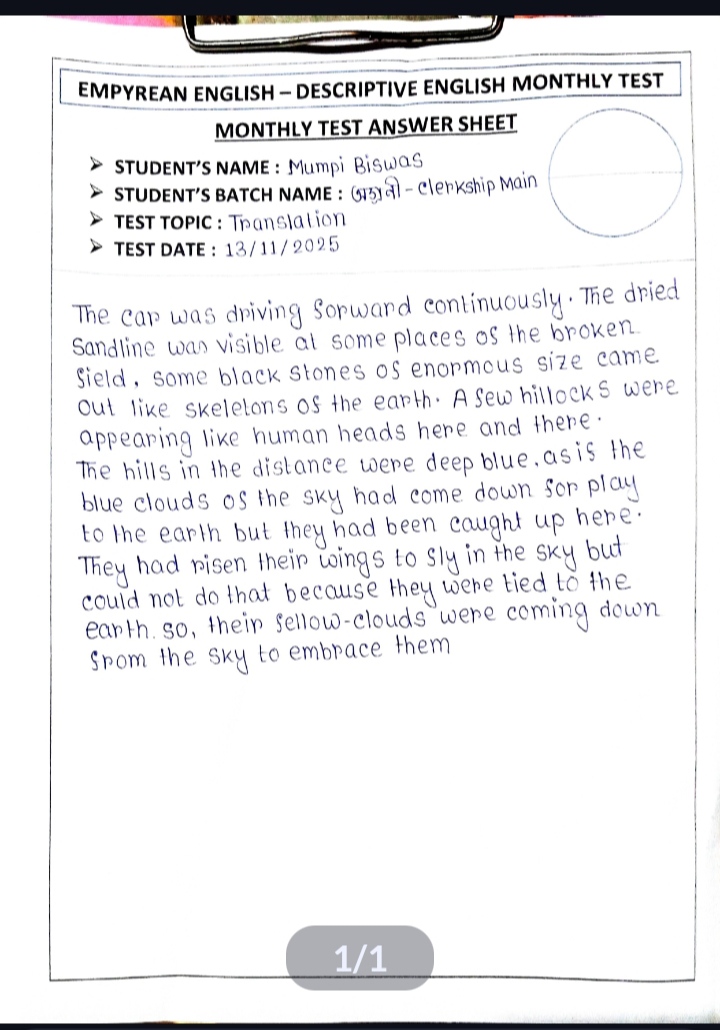 EMPYREAN ENGLISH – DESCRIPTIVE ENGLISH MONTHLY TEST
MONTHLY TEST ANSWER SHEET
➤ STUDENT'S NAME : Mumpi Biswas
➤ STUDENT'S BATCH NAME : - Clerkship Main
➤ TEST TOPIC : Translation
➤ TEST DATE : 13/11/2025
The car was driving forward continuously. The dried
Sandline was visible at some places of the broken
field. some black stones of enormous size came
out like skeletons of the earth. A few hillocks were
appearing like human heads here and there.
The hills in the distance were deep blue. as if the
blue clouds of the sky had come down for play
to the earth but they had been caught up here.
They had risen their wings to fly in the sky but
could not do that because they were tied to the
earth. so, their fellow-clouds were coming down
from the sky to embrace them
1/1